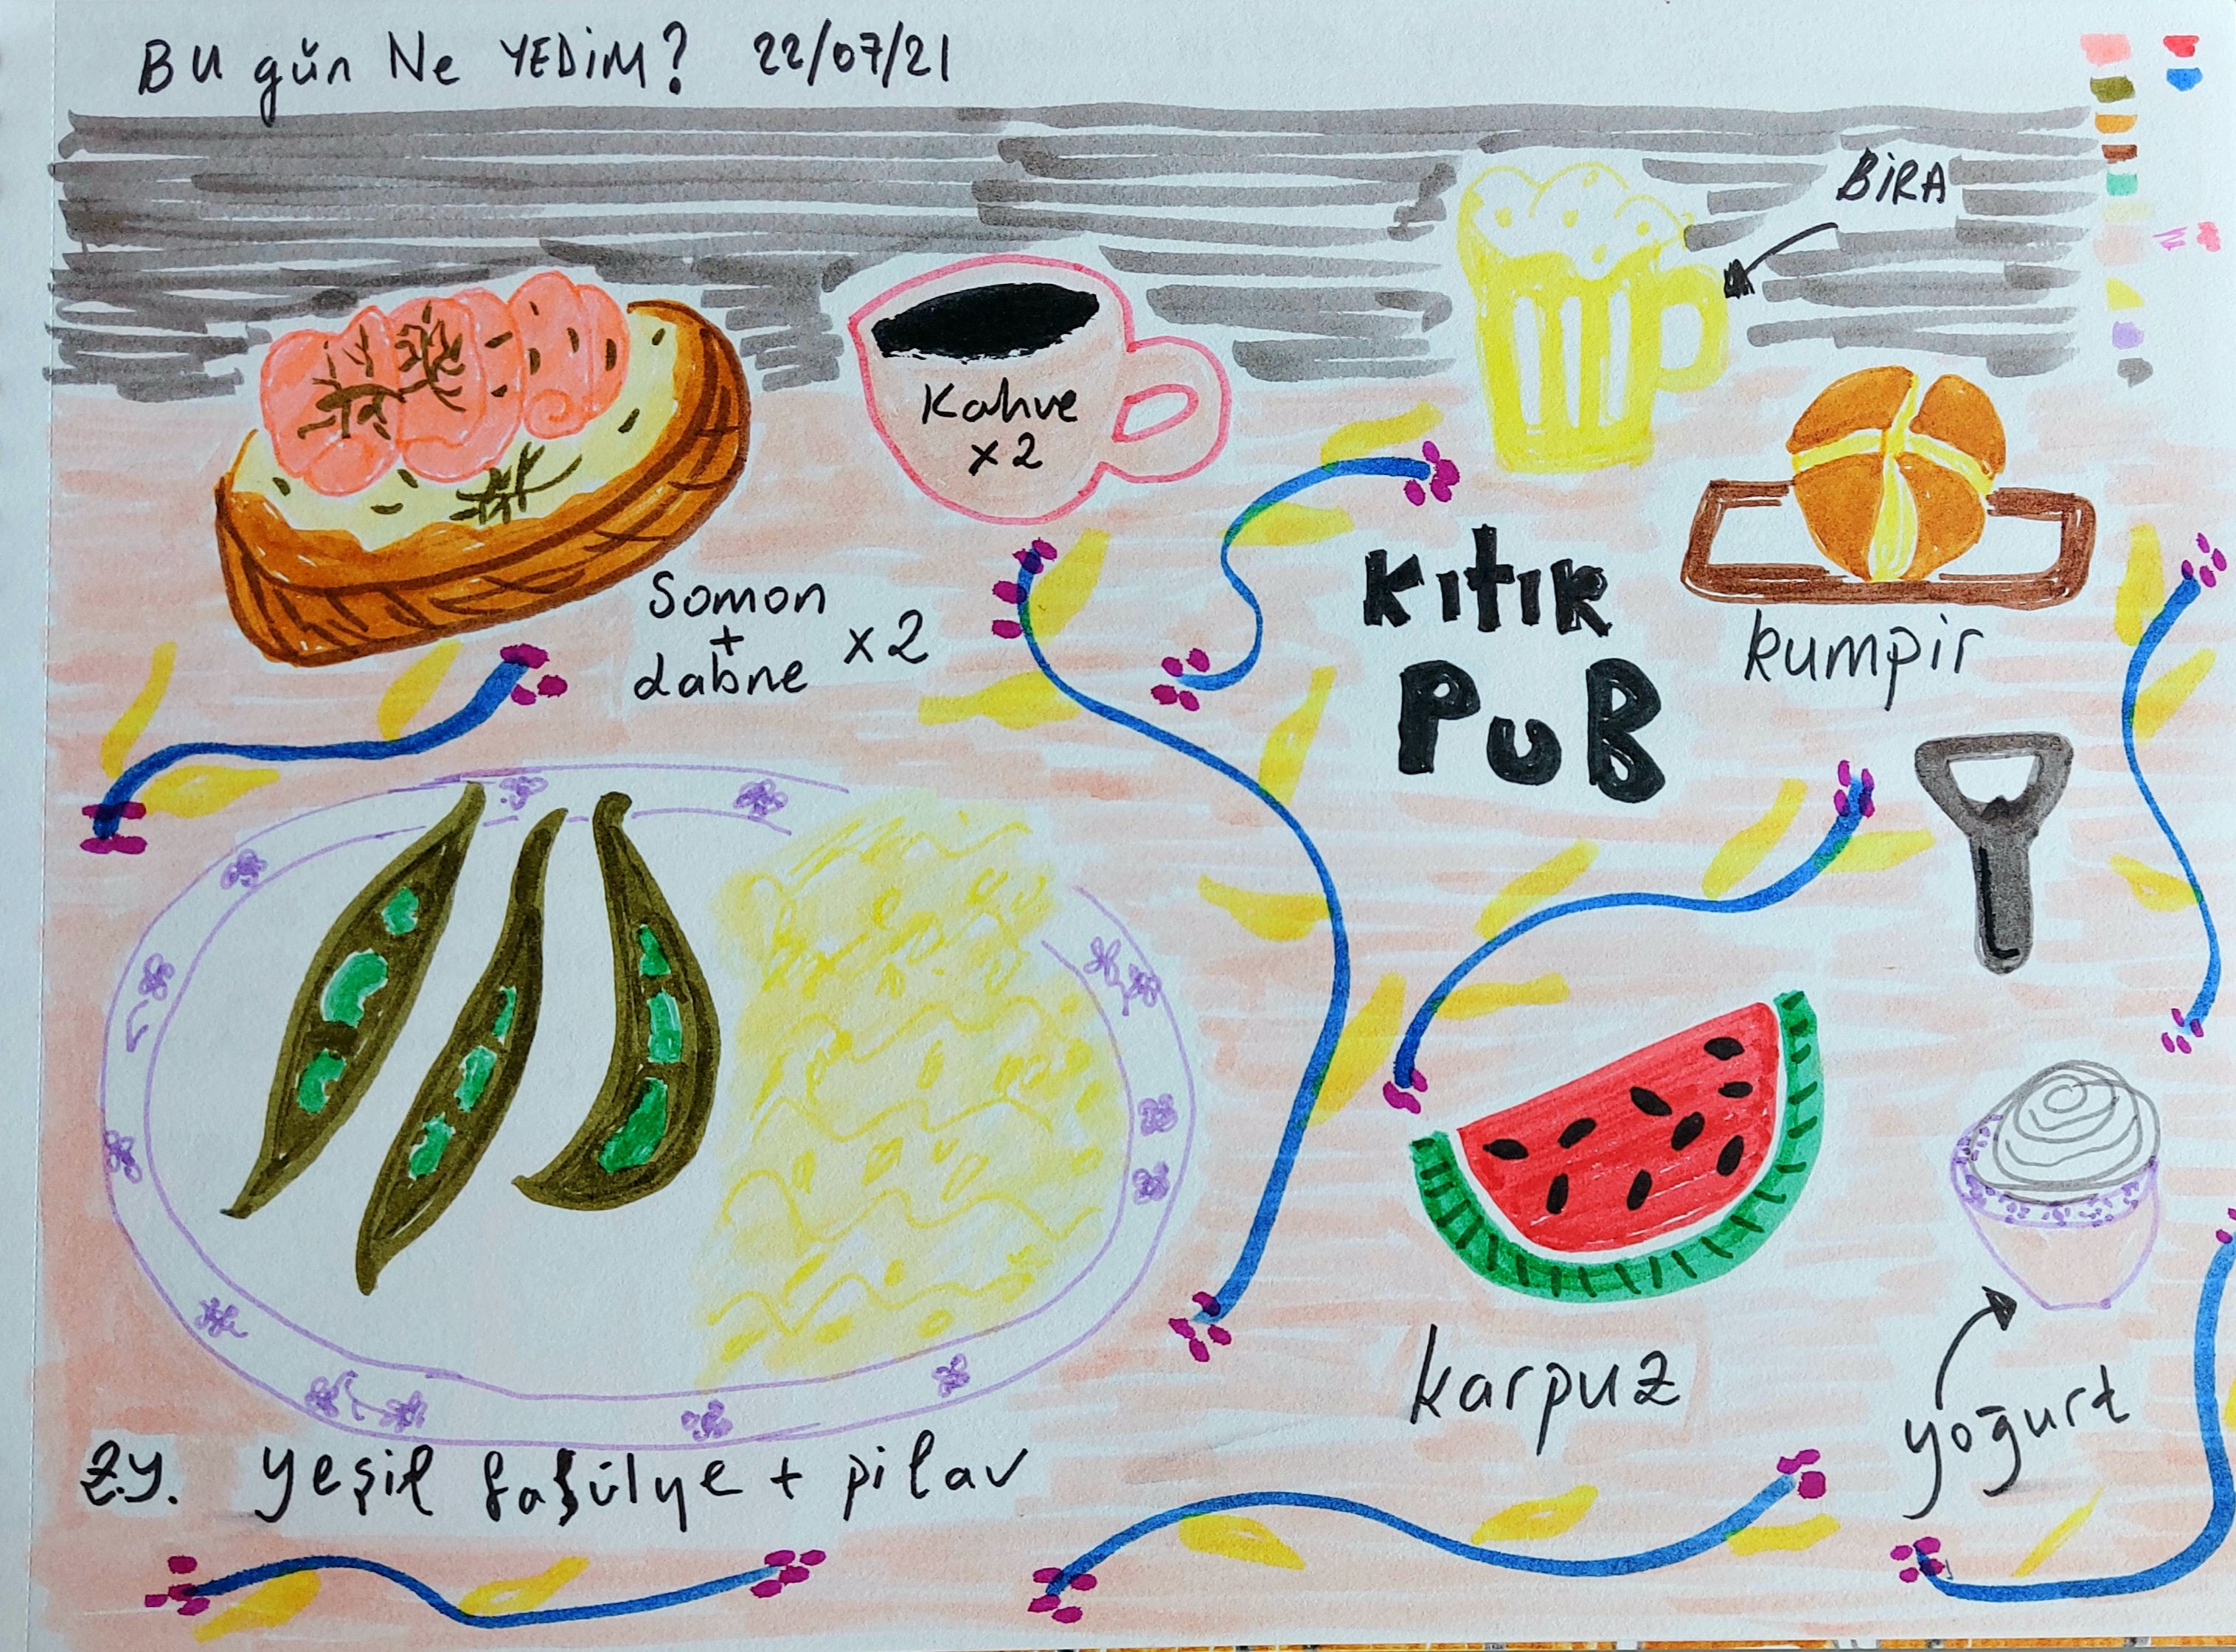 BU gün Ne YEDİM? 22/07/21
BİRA
Kahve
x2
Somon
+
dabne x2
KITIR
PUB
kumpir
karpuz
yoğurt
Z.Y. yeşil fasülye + pilav